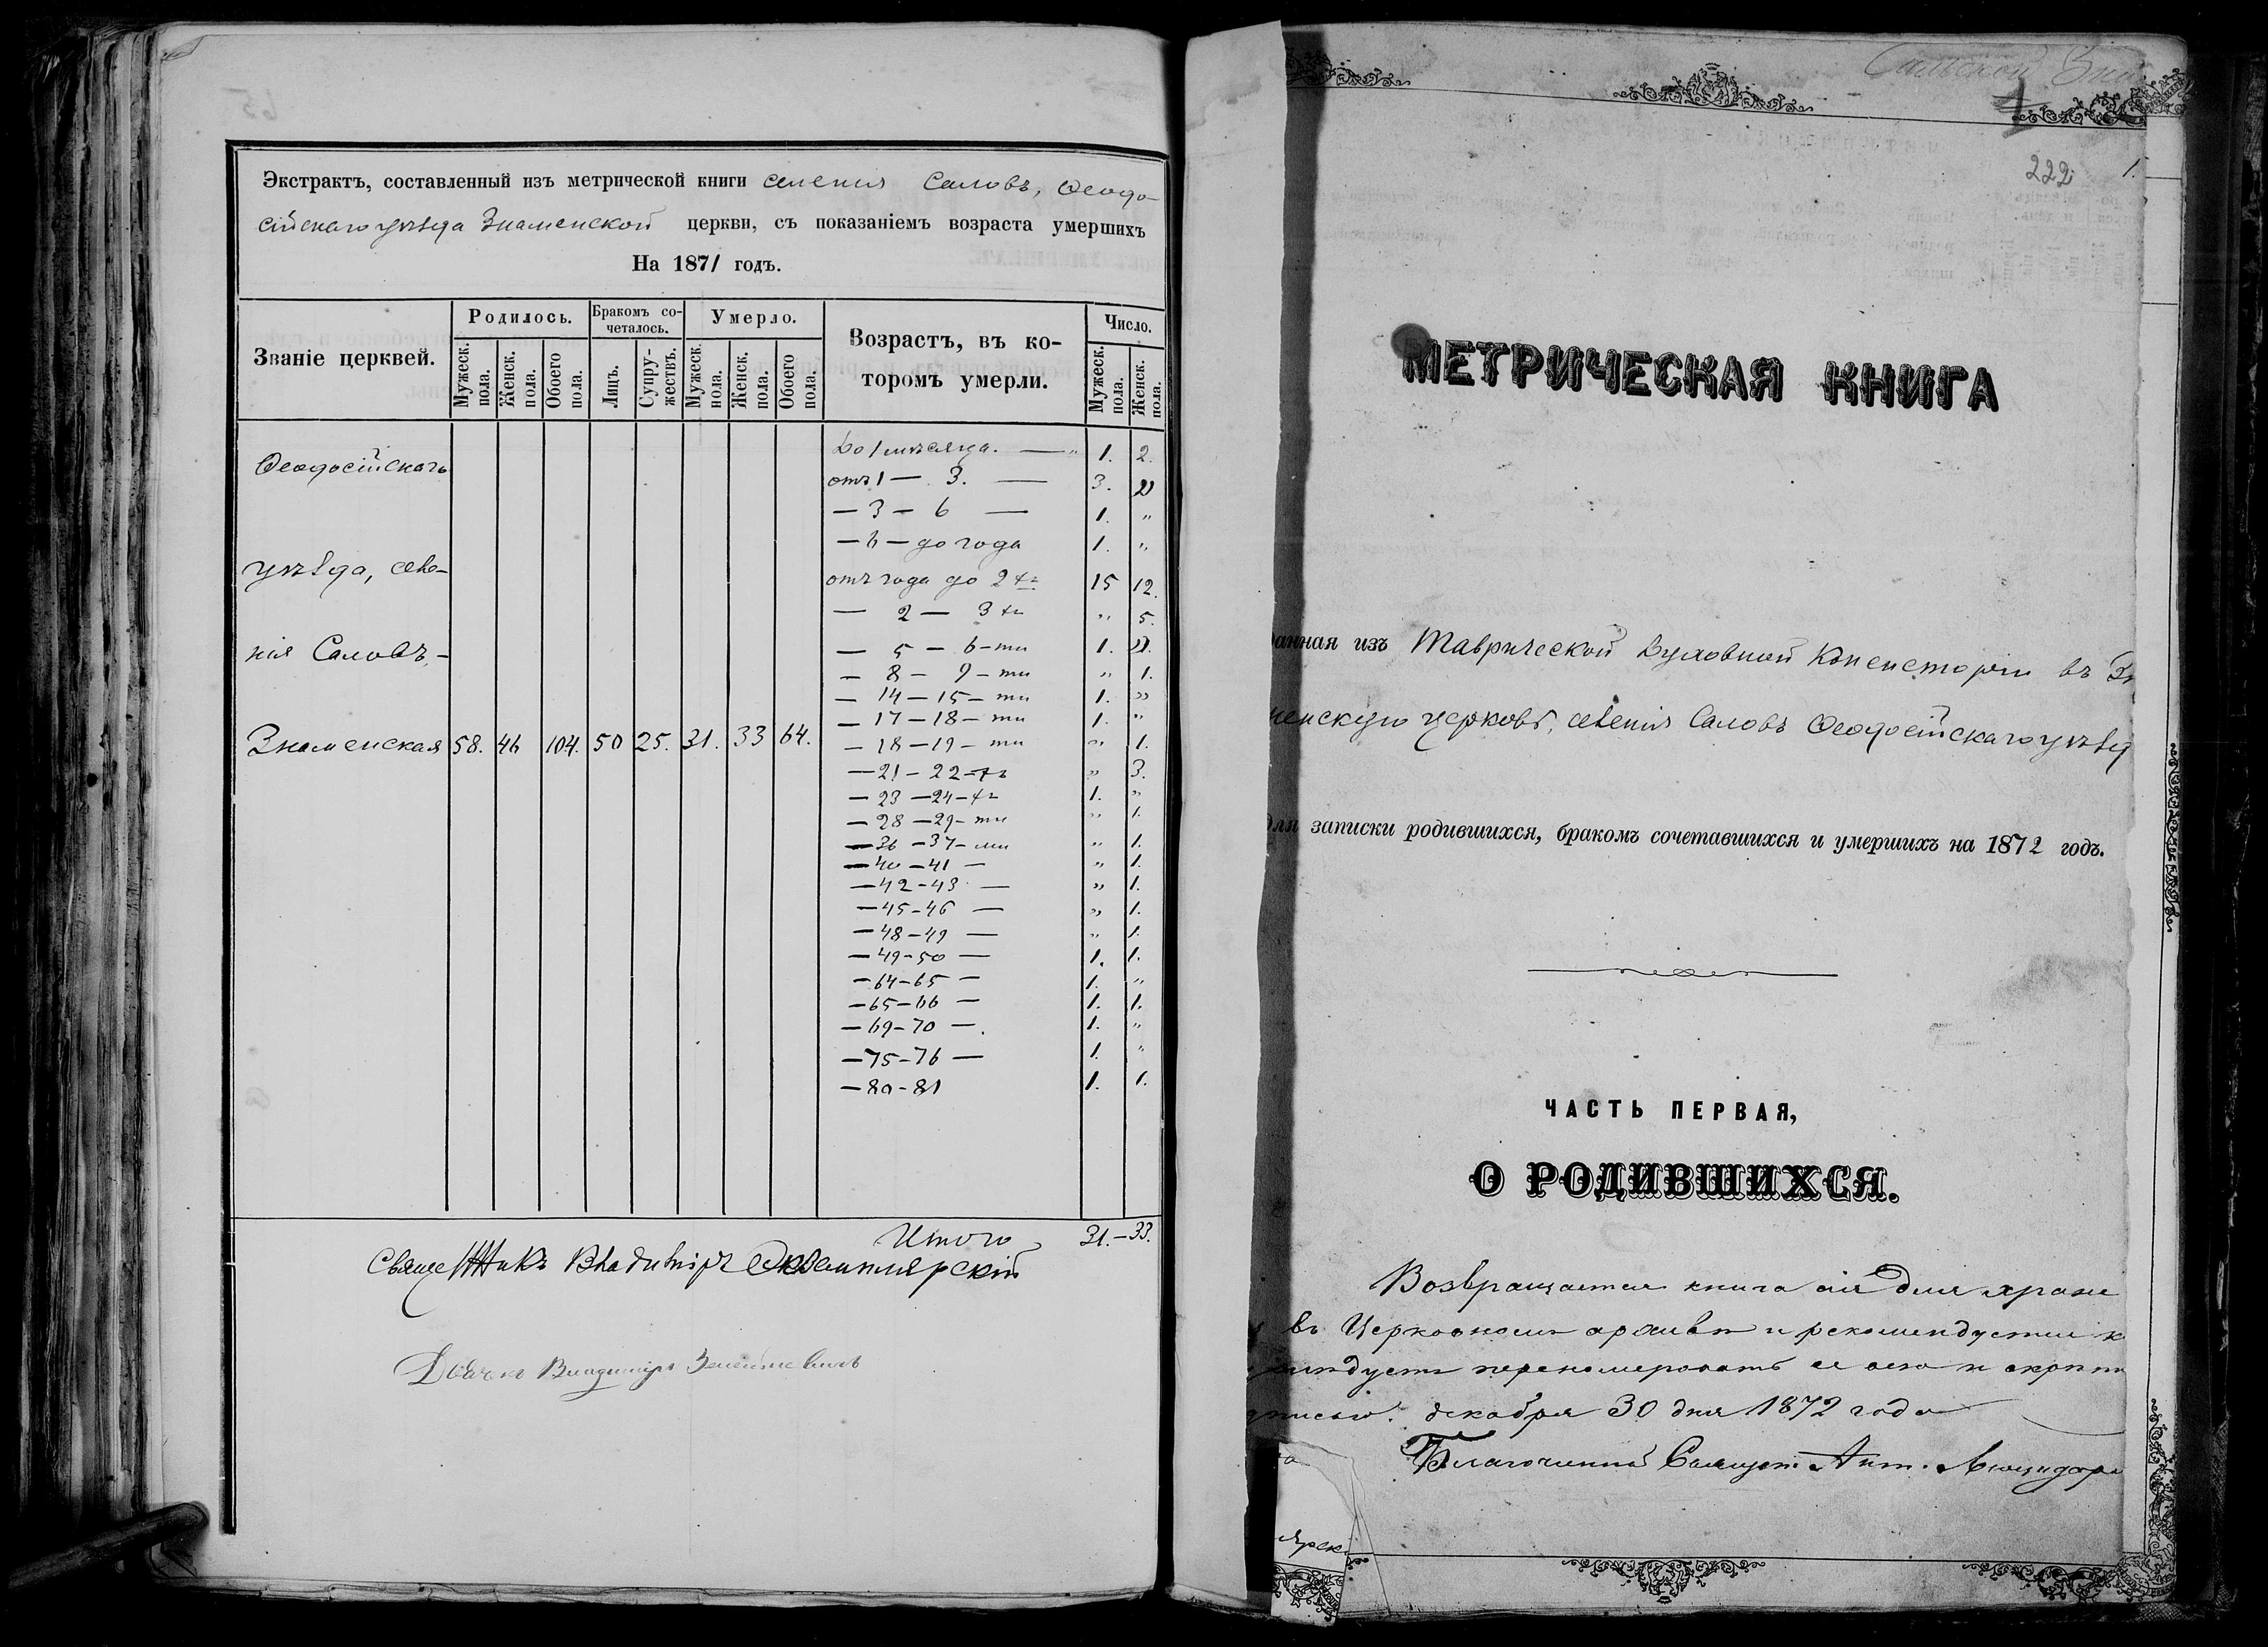 Экстрактъ, составленный изъ метрической книги селенія Саловъ, Ѳеодо-
сійскаго уѣзда Знаменской церкви, съ показаніемъ возраста умершихъ
На 1871 годъ.
Званіе церквей.
Родилось.
Мужеск. пола.
Женск. пола.
Обоего пола.
Бракомъ со-
четалось.
Лицъ.
Супру-
жествъ.
Умерло.
Мужеск. пола.
Женск. пола.
Обоего пола.
Возрастъ, въ ко-
торомъ умерли.
Число.
Мужеск. пола.
Женск. пола.
Ѳеодосійскаго
уѣзда, селе-
нія Саловъ,-
Знаменская 58. 46 104. 50 25. 31. 33 64.
До 1 мѣсяца. — 1. 2.
отъ 1 — 3. — 3. „
— 3 — 6 — 1. „
— 6 — до года 1. „
отъ года до 2 хъ 15 12.
— 2 — 3 хъ „ 5.
— 5 — 6-ти 1. „
— 8 — 9-ти „ 1.
— 14 — 15-ти 1. „
— 17 — 18-ти 1. „
— 18 — 19-ти „ 1.
— 21 — 22-хъ „ 3.
— 23 — 24-хъ 1. „
— 28 — 29-ти „ 1.
— 36 — 37-ми „ 1.
— 40 — 41 — „ 1.
— 42 - 43 — „ 1.
— 45 - 46 — „ 1.
— 48 - 49 — „ 1.
— 49 - 50 — 1. 1.
— 64 - 65 — 1. „
— 65 - 66 — 1. 1.
— 69 - 70 — 1. „
— 75 - 76 — 1. „
— 80 - 81 1. 1.
Итого 31.-33.
Священникъ Владиміръ Экземплярскій
Дьячокъ Владиміръ
Знам
222 1.
МЕТРИЧЕСКАЯ КНИГА
анная изъ Таврической Духовной Консисторіи въ Зн
менскую церковь, селенія Саловъ Ѳеодосійскаго уѣзд
для записки родившихся, бракомъ сочетавшихся и умершихъ на 1872 годъ.
ЧАСТЬ ПЕРВАЯ,
О РОДИВШИХСЯ.
Возвращается книга сія для хране
въ Церковномъ архивѣ и рекомендуется
перенумеровать ее
декабря 30 дня 1872 года
Благочинный Священ. Ант.
ярск